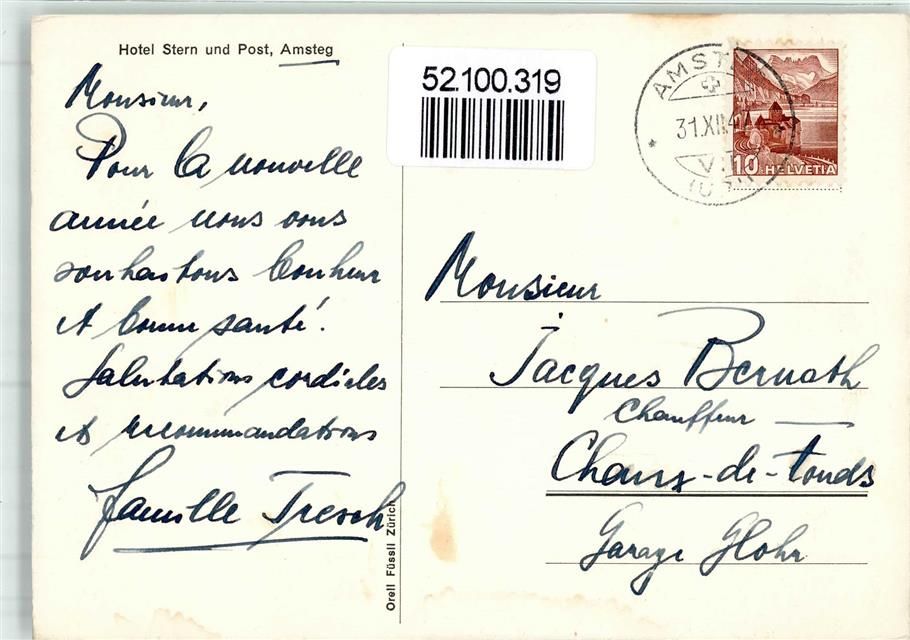 Hotel Stern und Post, Amsteg
52.100.319
Monsieur,
Pour la nouvelle
année nous vous
souhaitons bonheur
et bonne santé.
Salutations cordiales
et recommandations
famille Tresch
Orell Füssli Zürich
AMST
31.XII.47
(URI)
10 HELVETIA
Monsieur
Jacques Bernath
Chauffeur
Chaux-de-fonds
Garage Glohr